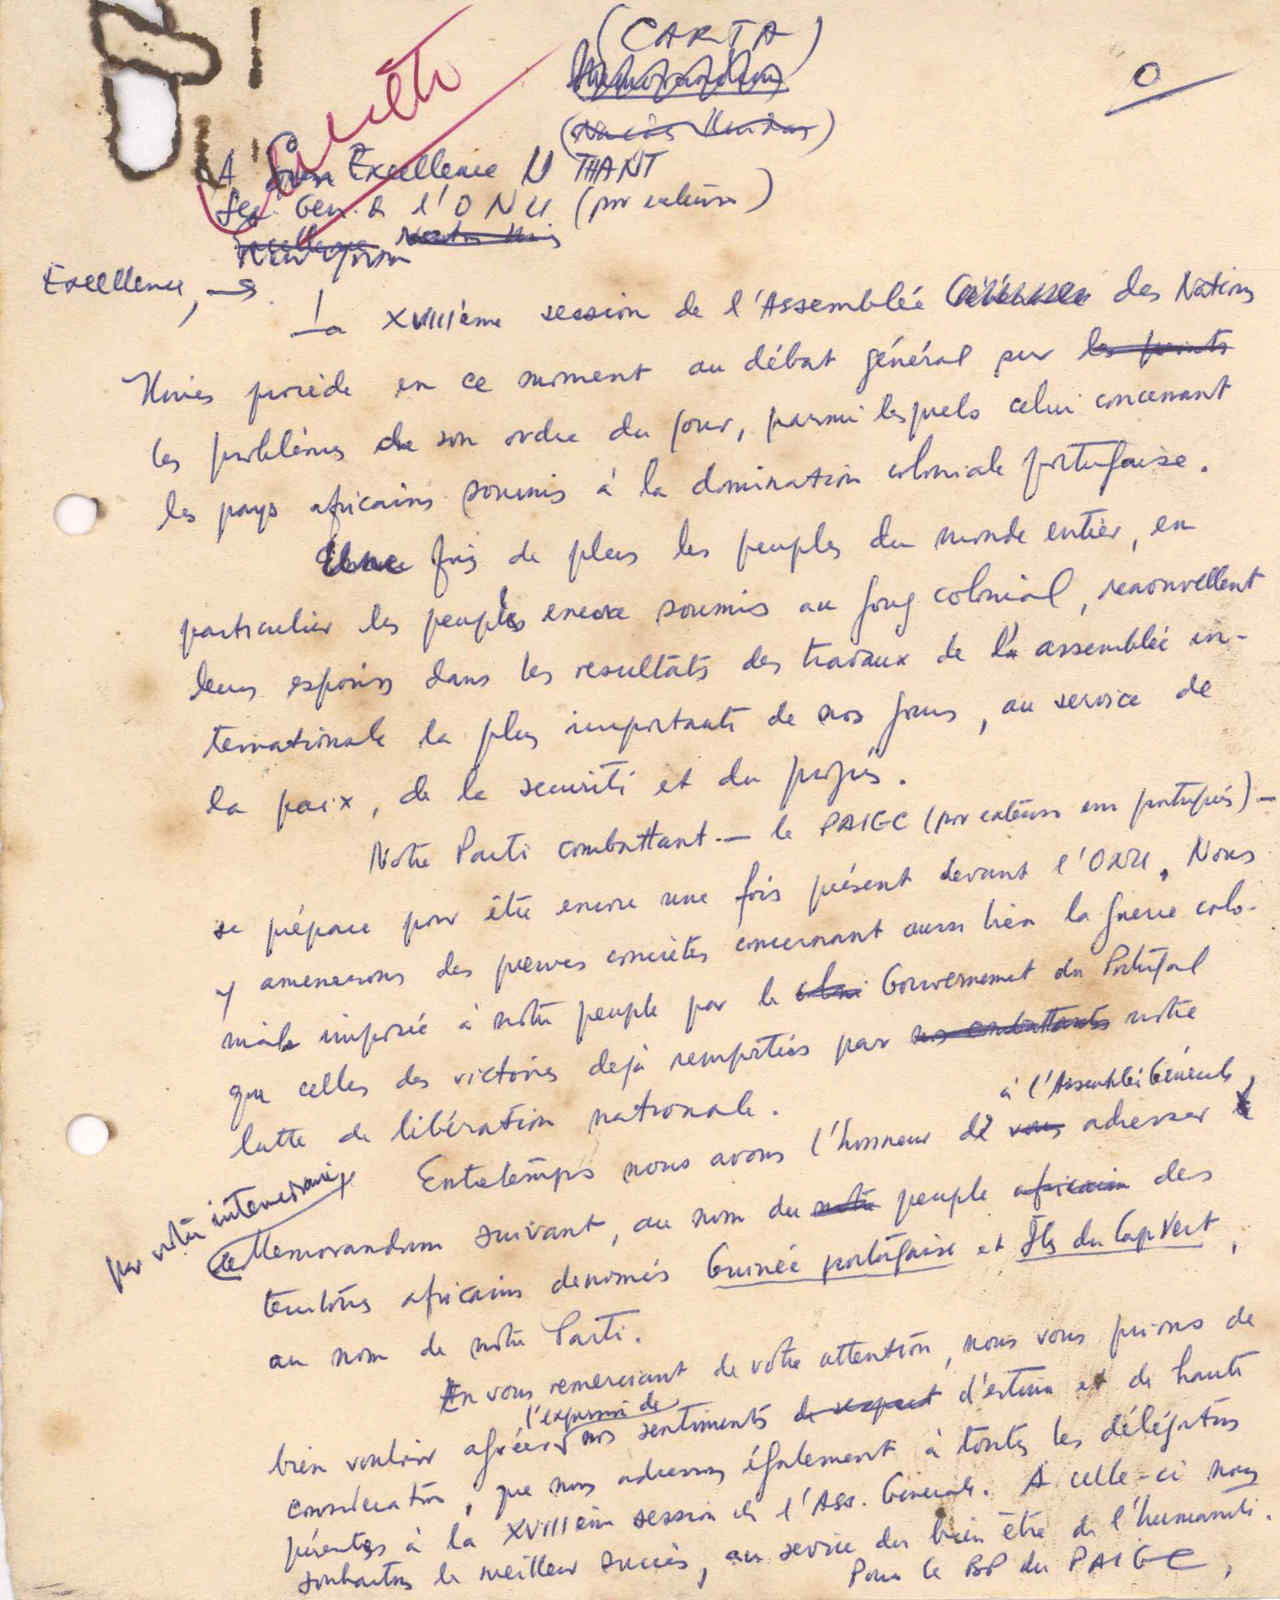 (CARTA)
Memorandum
(Nações Unidas)
0
A Son Excellence U THANT
Sec. Gen. de l'ONU (por extenso)
New York
Excellence,
La XVIIIème session de l'Assemblée Générale des Nations
Unies procède en ce moment au débat général sur les points
les problèmes de son ordre du jour, parmi lesquels celui concernant
les pays africains soumis à la domination coloniale portugaise.
Une fois de plus les peuples du monde entier, en
particulier les peuples encore soumis au joug colonial, renouvellent
leurs espoirs dans les résultats des travaux de la assemblée in-
ternationale la plus importante de nos jours, au service de
la paix, de la sécurité et du progrès.
Notre Parti combattant — le PAIGC (por extenso em português) —
se prépare pour être encore une fois présent devant l'ONU. Nous
y amenerons des preuves concrètes concernant aussi bien la guerre colo-
niale imposée à notre peuple par le Gouvernement du Portugal
que celles des victoires dejà remportées par nos combattants notre
lutte de libération nationale.
à l'Assemblée Générale,
Entretemps nous avons l'honneur de vous adresser
par votre intermédiaire
le Memorandum suivant, au nom du notre peuple africain des
territoires africains denomés Guinée portugaise et Iles du Cap Vert,
au nom de notre Parti.
En vous remerciant de votre attention, nous vous prions de
l'expression de
bien vouloir agréer nos sentiments de respect d'estime et de haute
considération, que nous adressons également à toutes les délégations
présentes à la XVIIIème session de l'Ass. Générale. A celle-ci nous
souhaitons le meilleur succès, au service du bien être de l'humanité.
Pour le BP du PAIGC,